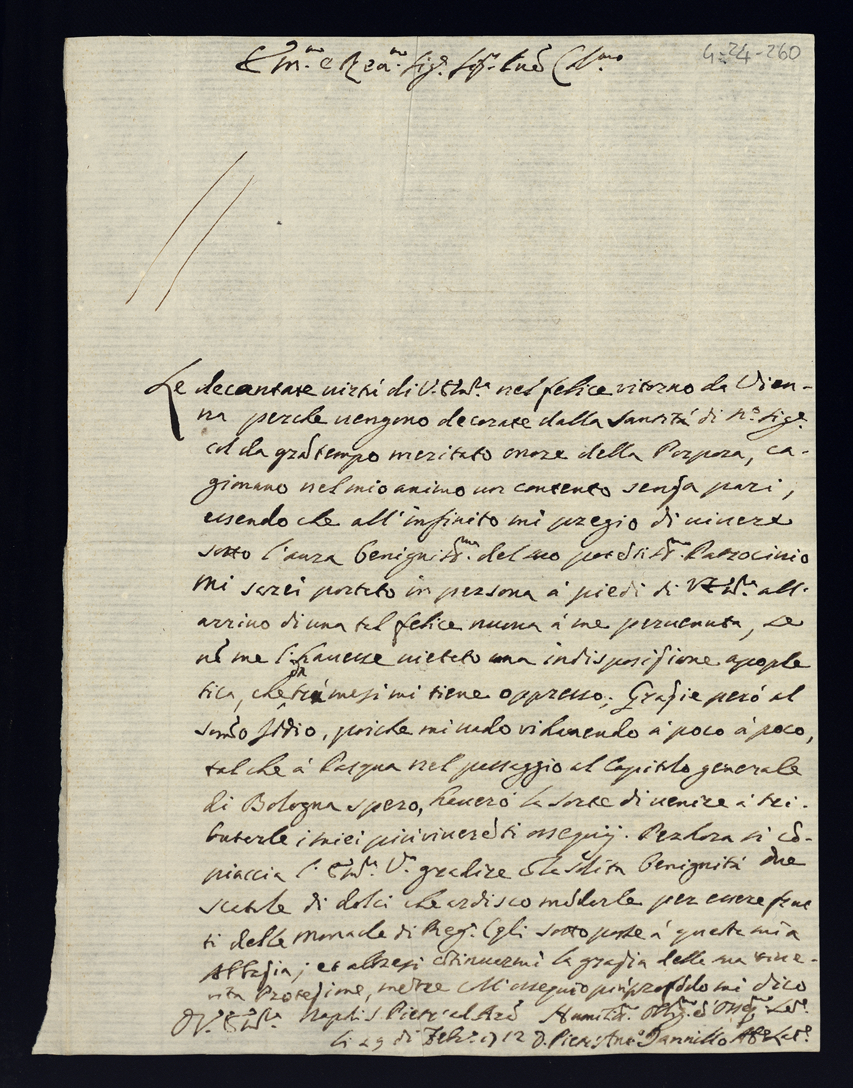 4-24-260
Em.mo e Rev.mo Sig.r Sig.r P̃ne Col.mo
Le decantate virtù di V. Em.za nel felice ritorno da Vien-
na perche vengono decorate dalla Santità di N.ro Sig.re
col da grã tempo meritato onore della Porpora, ca-
gionano nel mio animo un contento senza pari,
essendo che all'infinito mi pregio di vivere
sotto l'aura benignis.ma del suo Patrocinio
Mi sarei portato in persona à piedi di V. Em.za all'
arrivo di una tal felice nuova à me pervenuta, se
nõ me l'havesse vietato una indisposizione apople
tica, che da trè mesi mi tiene oppresso; Grazie però al
som̃o Iddio, poiche mi vado rihavendo à poco à poco,
tal che à Pasqua nel passaggio al Capitolo generale
di Bologna spero, haverò la sorte di venire à tri-
butarle i miei più riverẽti ossequij. Per hora si cõ-
piaccia l'Em.za V.ra gradire cõ la solita benignità due
scatole di dolci che ardisco mãdarle per essere frut
ti delle Monache di Regg. sottoposte à questa mia
Abbazia; et altresi cõtinuarmi la grazia della sua rive-
rita Protezione, mẽtre coll'ossequio più profõdo mi dico
Di V. Em.za Napoli S. Pietro ad Arã Humilis.mo Oblig.mo ed Osseq.mo Ser.re
li 29 di Feb.ro 1712 D. Pietr'Ant.o Iannillo Ab.e Lat.se